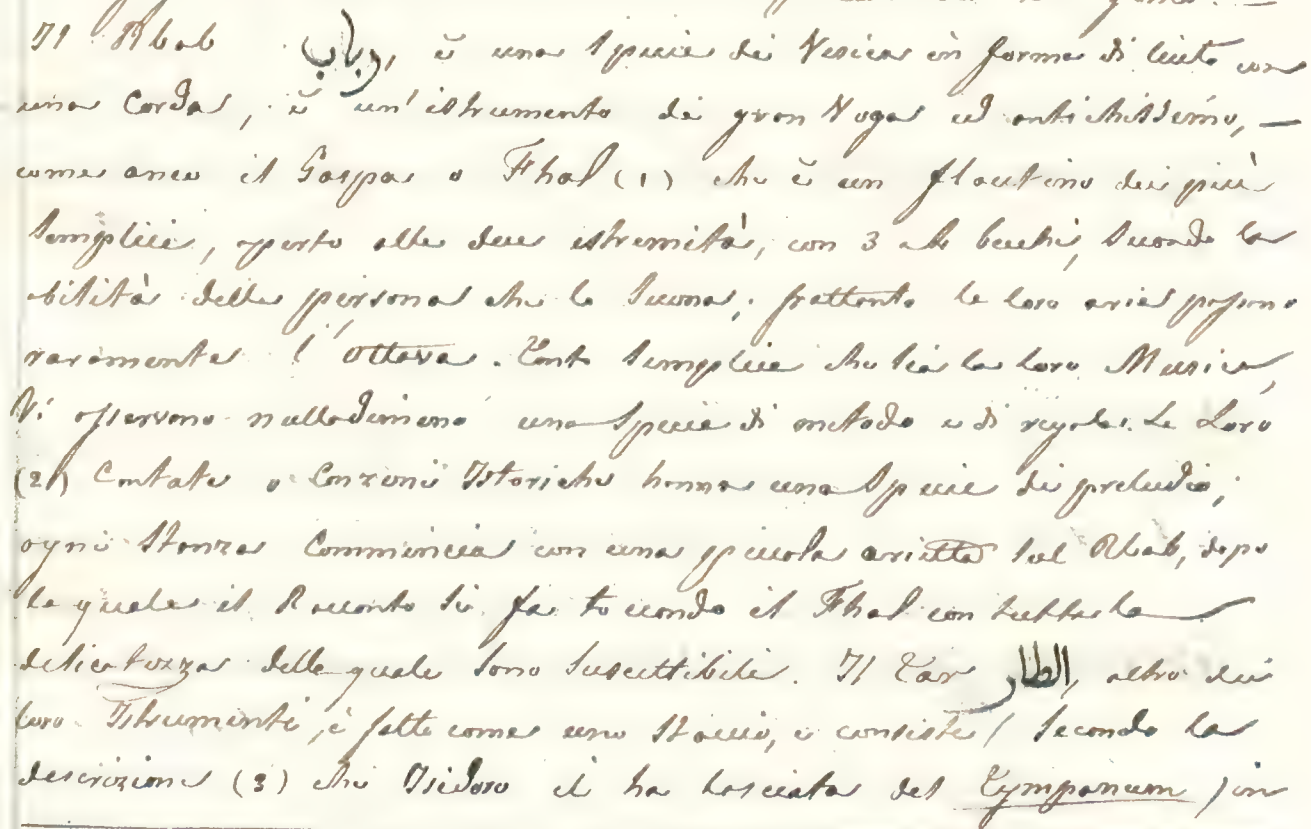 Il Rbab رباب, è una Specie di Vesica in forma di liuto con
una Corda, è un' istrumento di gran Voga ed antichissimo, —
come anco il Gaspa o Fhal (1) che è un flautino dei più
Semplici, aperto alle due estremità, con 3 alt buchi, Secondo la
abilità della persona che lo Suona; frattanto le loro arie passono
raramente l'ottava. Tanto Semplice che sia la loro Musica,
Vi osservono nulladimeno una Specie di metodo e di regola. Le Loro
(2) Cantate o Canzoni Istoriche hanno una Specie di preludio;
ogni Stanza Commincia con una piccola arietta sul Rbab, dopo
la quale il Racconto Si fa toccondo il Fhal con tutta la
delicatezza della quale Sono Suscettibili. Il Tar الطار, altro dei
loro Istrumenti, è fatto come uno Staccio, e consiste ( Secondo la
descrizione (3) che Isidoro ci ha lasciata del Tympanum ) in